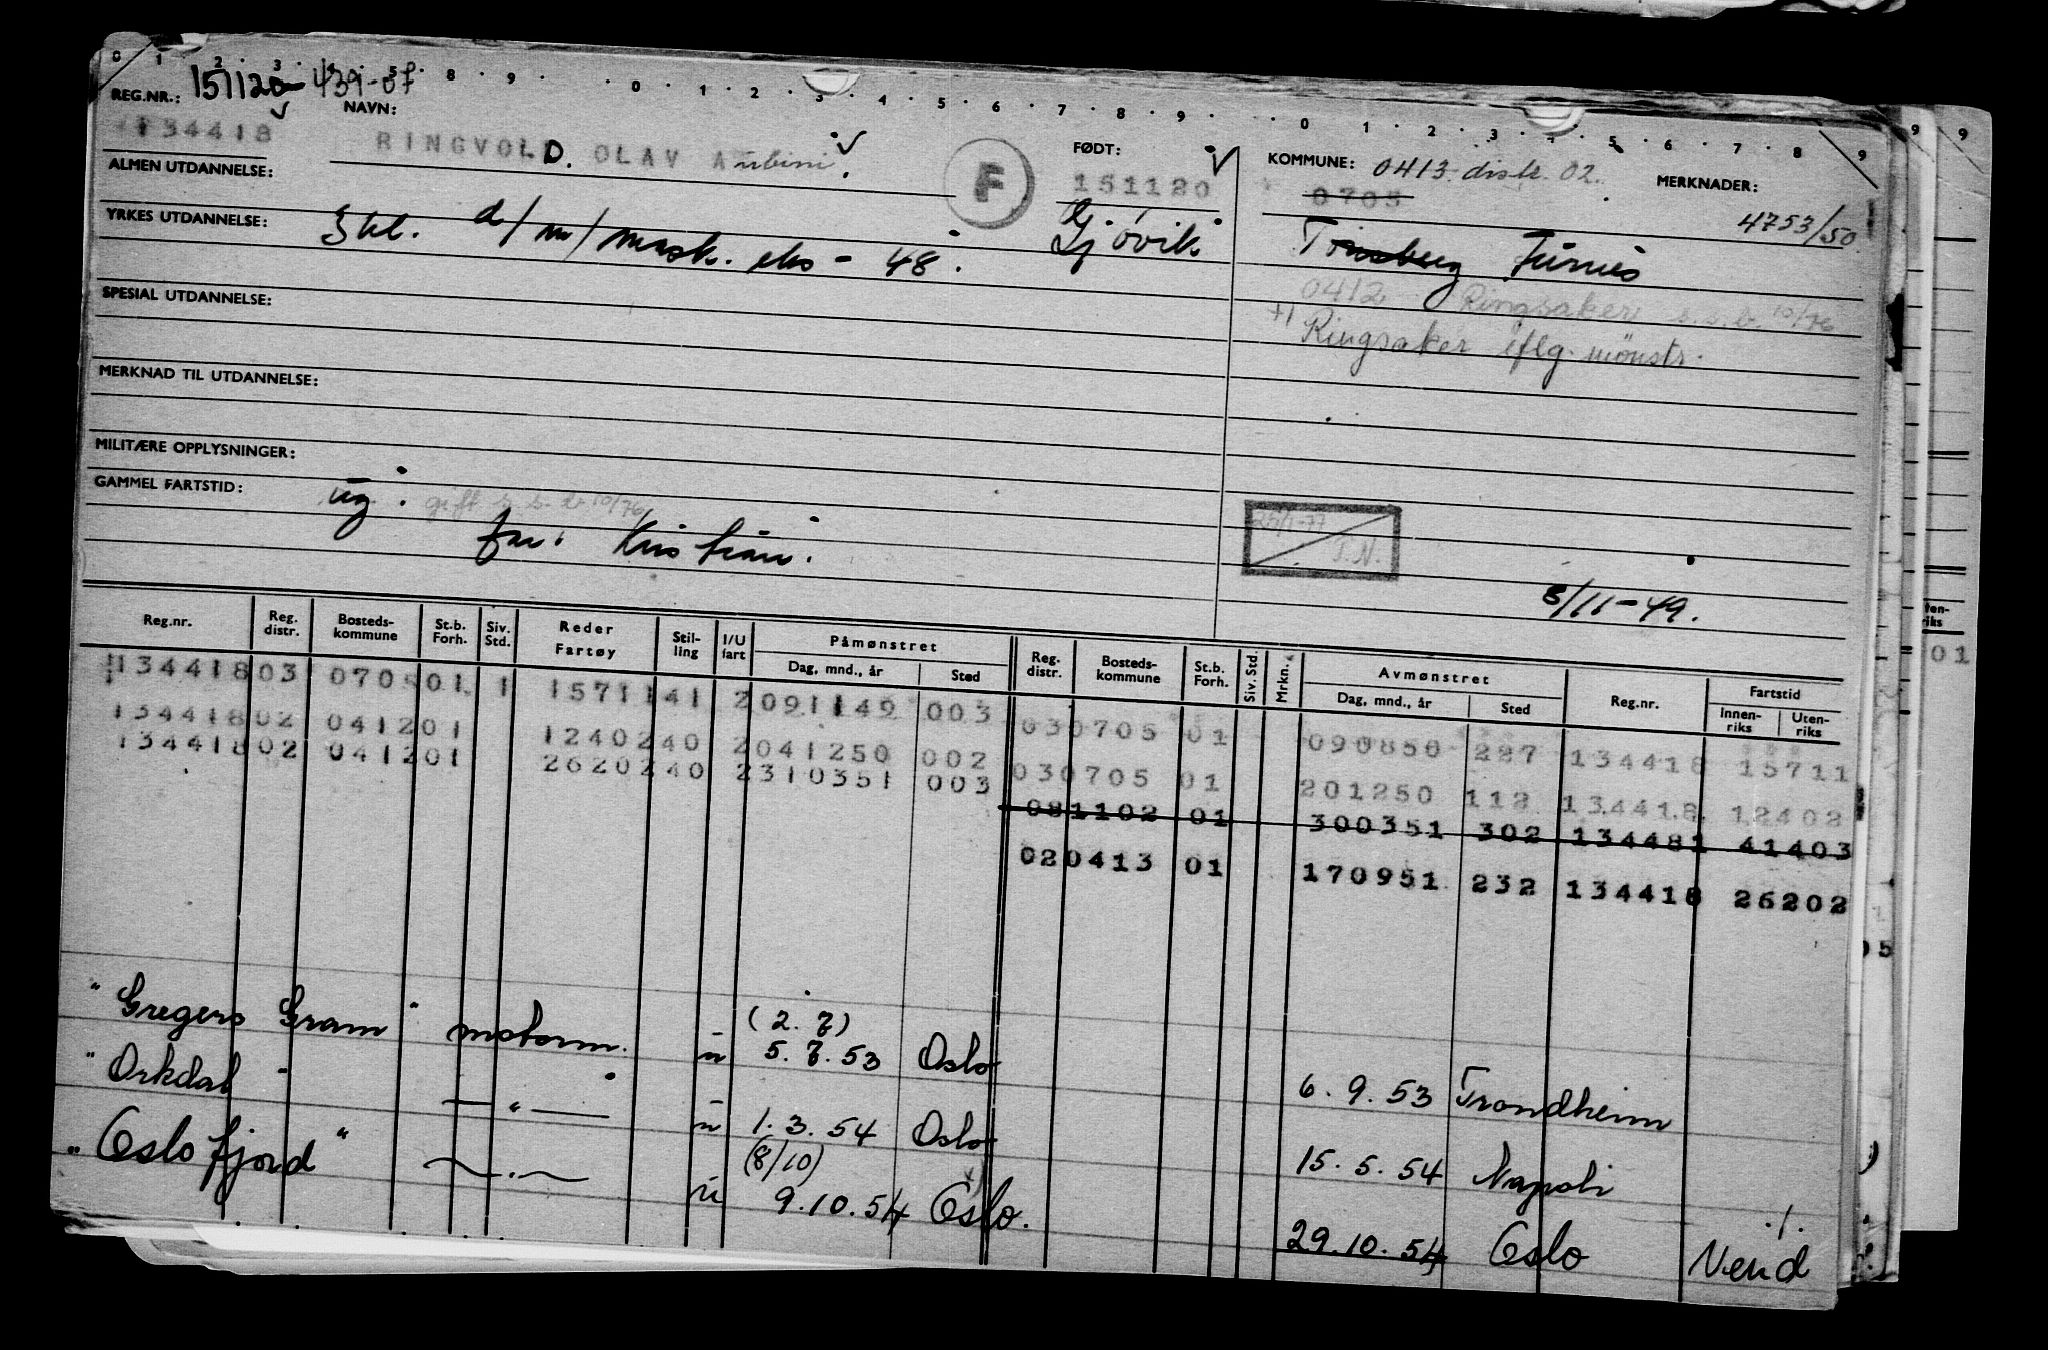 0 1 2 3 8 9 0 1 2 3 4 5 6 7 8 9 0 1 2 3 4 5 6 7 8 9
REG.NR.: 151120 439-07
134418
NAVN:
RINGVOLD. OLAV
FØDT:
151120
Gjøvik
KOMMUNE: 0413 distr. 02.
0705
MERKNADER:
4753/50
Tønsberg Furnes
0412 Ringsaker s.s.b. 10/76
Ringsaker iflg. mønstr.
F
ALMEN UTDANNELSE:
YRKES UTDANNELSE: d/m/mask. eks - 48.
SPESIAL UTDANNELSE:
MERKNAD TIL UTDANNELSE:
MILITÆRE OPPLYSNINGER:
GAMMEL FARTSTID: ug. gift s.s.b 10/76
far: Kristian.
25/1-77
T.N.
5/11-49.
Reg.nr. Reg. distr. Bosteds-kommune St.b. Forh. Siv. Std. Reder Fartøy Stil-ling I/U fart Påmønstret Dag, mnd., år Sted Reg. distr. Bosteds-kommune St.b. Forh. Siv. Std. Mrkn. Avmønstret Dag, mnd., år Sted Reg.nr. Fartstid Innen-riks Uten-riks
134418 03 0705 01 1 1571141 2 091149 003 03 0705 01 090850 227 134418 15711
134418 02 0412 01 1240240 2 041250 002 03 0705 01 201250 112 134418 12402
134418 02 0412 01 2620240 2 310351 003 08 1102 01 300351 302 134481 41403
02 0413 01 170951 232 134418 26202
"Gregers Gram" motorm. u (2.7) 5.7.53 Oslo 6.9.53 Trondheim
"Orkdal" — " — u 1.3.54 Oslo 15.5.54 Napoli
"Oslofjord" u (8/10) 9.10.54 Oslo. 29.10.54 Oslo Vend